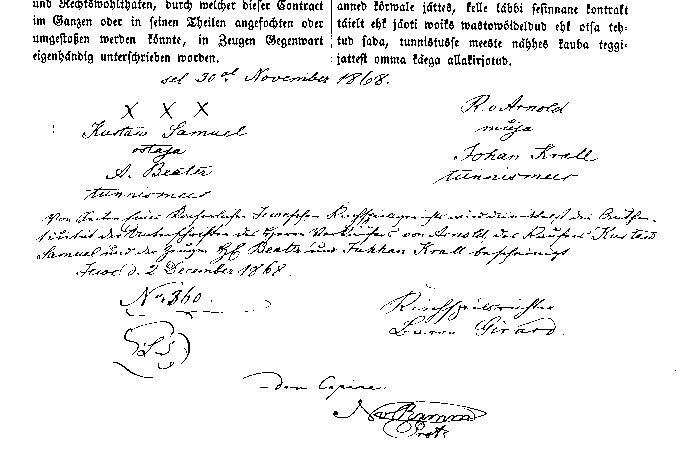 und Rechtswohlthaten, durch welcher dieser Contract
im Ganzen oder in seinen Theilen angefochten oder
umgestoßen werden könnte, in Zeugen Gegenwart
eigenhändig unterschrieben worden.
anned kõrwale jättes, kelle läbbi sesinnane kontrakt
täielt ehk jäoti woiks wastowõideldud ehk otsa teh-
tud sada, tunnistusse meeste nähhes kauba teggi-
jattest omma käega allakirjotud.
sel 30al November 1868.
X X X
Kustaw Samuel
ostaja
A. Beater
tunnismees
R. v Arnold
müja
Johan Krall
tunnismees
Von Seiten Eines Kaiserlichen Kirchspielsgerichts wird desmittelst die Authen-
ticität der Unterschriften des Herrn Verkäufers von Arnold, des Käufers Kustaw
Samuel und der Zeugen Beater und Krall bescheinigt
d. 2 December 1868.
No 360.
L. S.
Kirchspielsrichter
Baron Girard.
Copiae.